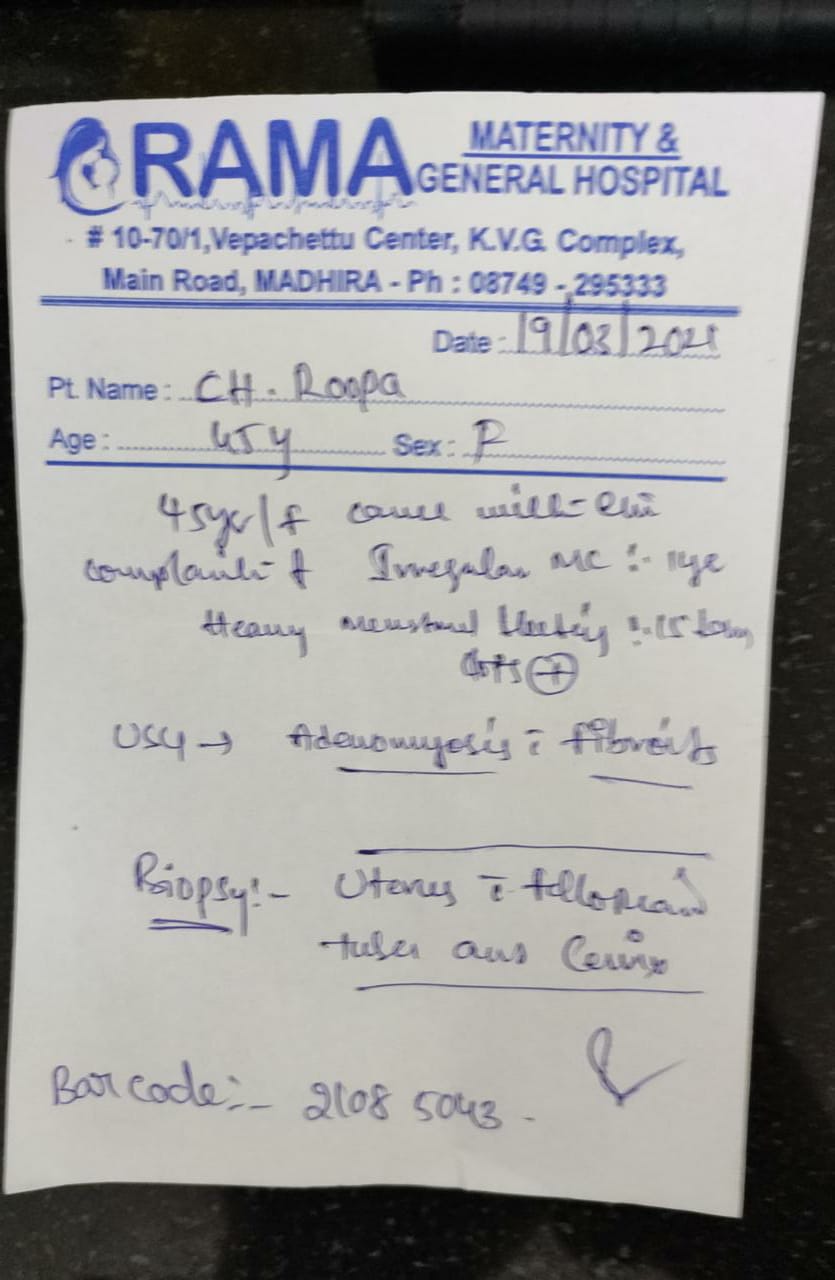 RAMA MATERNITY &
GENERAL HOSPITAL
# 10-70/1, Vepachettu Center, K.V.G. Complex,
Main Road, MADHIRA - Ph : 08749 - 295333
Date : 19/03/2021
Pt. Name : CH. Roopa
Age : 45y Sex : F
45yr/f came with
complaint of Irregular MC :- 1ye
Heavy menstrual bleeding :- 15 days
clots ⊕
USG → Adenomyosis c̄ fibroids
Biopsy:- Uterus c̄ fallopian
tubes and Cervix
Barcode:- 2108 5043 -